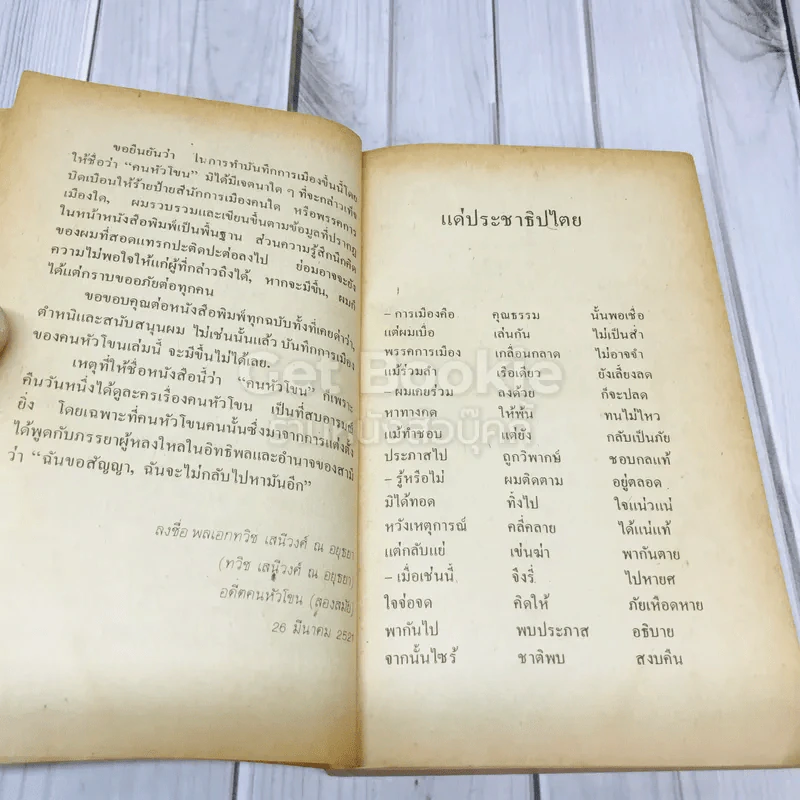 ขอยืนยันว่า ในการทำบันทึกการเมืองขึ้นนี้โดย
ให้ชื่อว่า “คนหัวโขน” มิได้มีเจตนาใด ๆ ที่จะกล่าวเท็จ
บิดเบือนให้ร้ายป้ายสีนักการเมืองคนใด หรือพรรคการ
เมืองใด, ผมรวบรวมและเขียนขึ้นตามข้อมูลที่ปรากฏ
ในหน้าหนังสือพิมพ์เป็นพื้นฐาน ส่วนความรู้สึกนึกคิด
ของผมที่สอดแทรกปะติดปะต่อลงไป ย่อมอาจจะยัง
ความไม่พอใจให้แก่ผู้ที่กล่าวถึงได้, หากจะมีขึ้น, ผมก็
ได้แต่กราบขออภัยต่อทุกคน
ขอขอบคุณต่อหนังสือพิมพ์ทุกฉบับทั้งที่เคยด่าว่า,
ตำหนิและสนับสนุนผม ไม่เช่นนั้นแล้ว บันทึกการเมือง
ของคนหัวโขนเล่มนี้ จะมีขึ้นไม่ได้เลย.
เหตุที่ให้ชื่อหนังสือนี้ว่า “คนหัวโขน” ก็เพราะ
คืนวันหนึ่งได้ดูละครเรื่องคนหัวโขน เป็นที่สบอารมณ์
ยิ่ง โดยเฉพาะที่คนหัวโขนคนนั้นซึ่งมาจากการแต่งตั้ง
ได้พูดกับภรรยาผู้หลงใหลในอิทธิพลและอำนาจของสามี
ว่า “ฉันขอสัญญา, ฉันจะไม่กลับไปหามันอีก”
ลงชื่อ พลเอกทวิช เสนีวงศ์ ณ อยุธยา
(ทวิช เสนีวงศ์ ณ อยุธยา)
อดีตคนหัวโขน (สองสมัย)
26 มีนาคม 2521
แด่ประชาธิปไตย
– การเมืองคือ คุณธรรม นั้นพอเชื่อ
แต่ผมเบื่อ เล่นกัน ไม่เป็นส่ำ
พรรคการเมือง เกลื่อนกลาด ไม่อาจจำ
แม้ร่วมลำ เรือเดียว ยังเสี่ยงลด
– ผมเคยร่วม ลงด้วย ก็จะปลด
หาทางกด ให้พ้น ทนไม่ไหว
แม้ทำชอบ แต่ยัง กลับเป็นภัย
ประภาสไป ถูกวิพากษ์ ชอบกลแท้
– รู้หรือไม่ ผมติดตาม อยู่ตลอด
มิได้ทอด ทิ้งไป ใจแน่วแน่
หวังเหตุการณ์ คลี่คลาย ได้แน่แท้
แต่กลับแย่ เข่นฆ่า พากันตาย
– เมื่อเช่นนี้ จึงรี่ ไปหายศ
ใจจ่อจด คิดให้ ภัยเหือดหาย
พากันไป พบประภาส อธิบาย
จากนั้นไซร้ ชาติพบ สงบคืน
Get Bookie